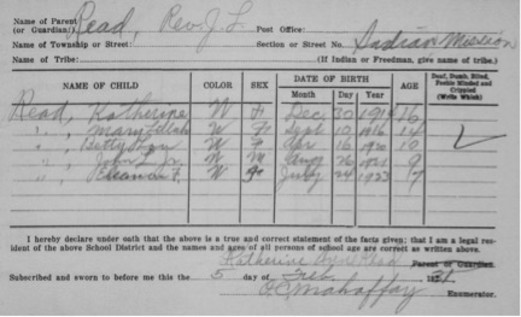 Name of Parent (or Guardian) Read, Rev. J. L. Post Office:
Name of Township or Street: Section or Street No. Indian Mission
Name of Tribe: (If Indian or Freedman, give name of tribe.)
NAME OF CHILD COLOR SEX DATE OF BIRTH AGE Deaf, Dumb, Blind, Feeble Minded and Crippled (Write Which)
Month Day Year
Read, Katherine W F Dec 30 1914 16
" , Mary W F Sept 10 1916 14
" , Betty W F Apr 16 1920 10
" , John L. Jr. W M Aug 26 1921 9
" , Eleanor F. W F July 24 1923 7
I hereby declare under oath that the above is a true and correct statement of the facts given; that I am a legal res-
ident of the above School District and the names and ages of all persons of school age are correct as written above.
Katherine Read Parent or Guardian.
Subscribed and sworn to before me this the 5 day of Feb 1931
Mahaffay Enumerator.